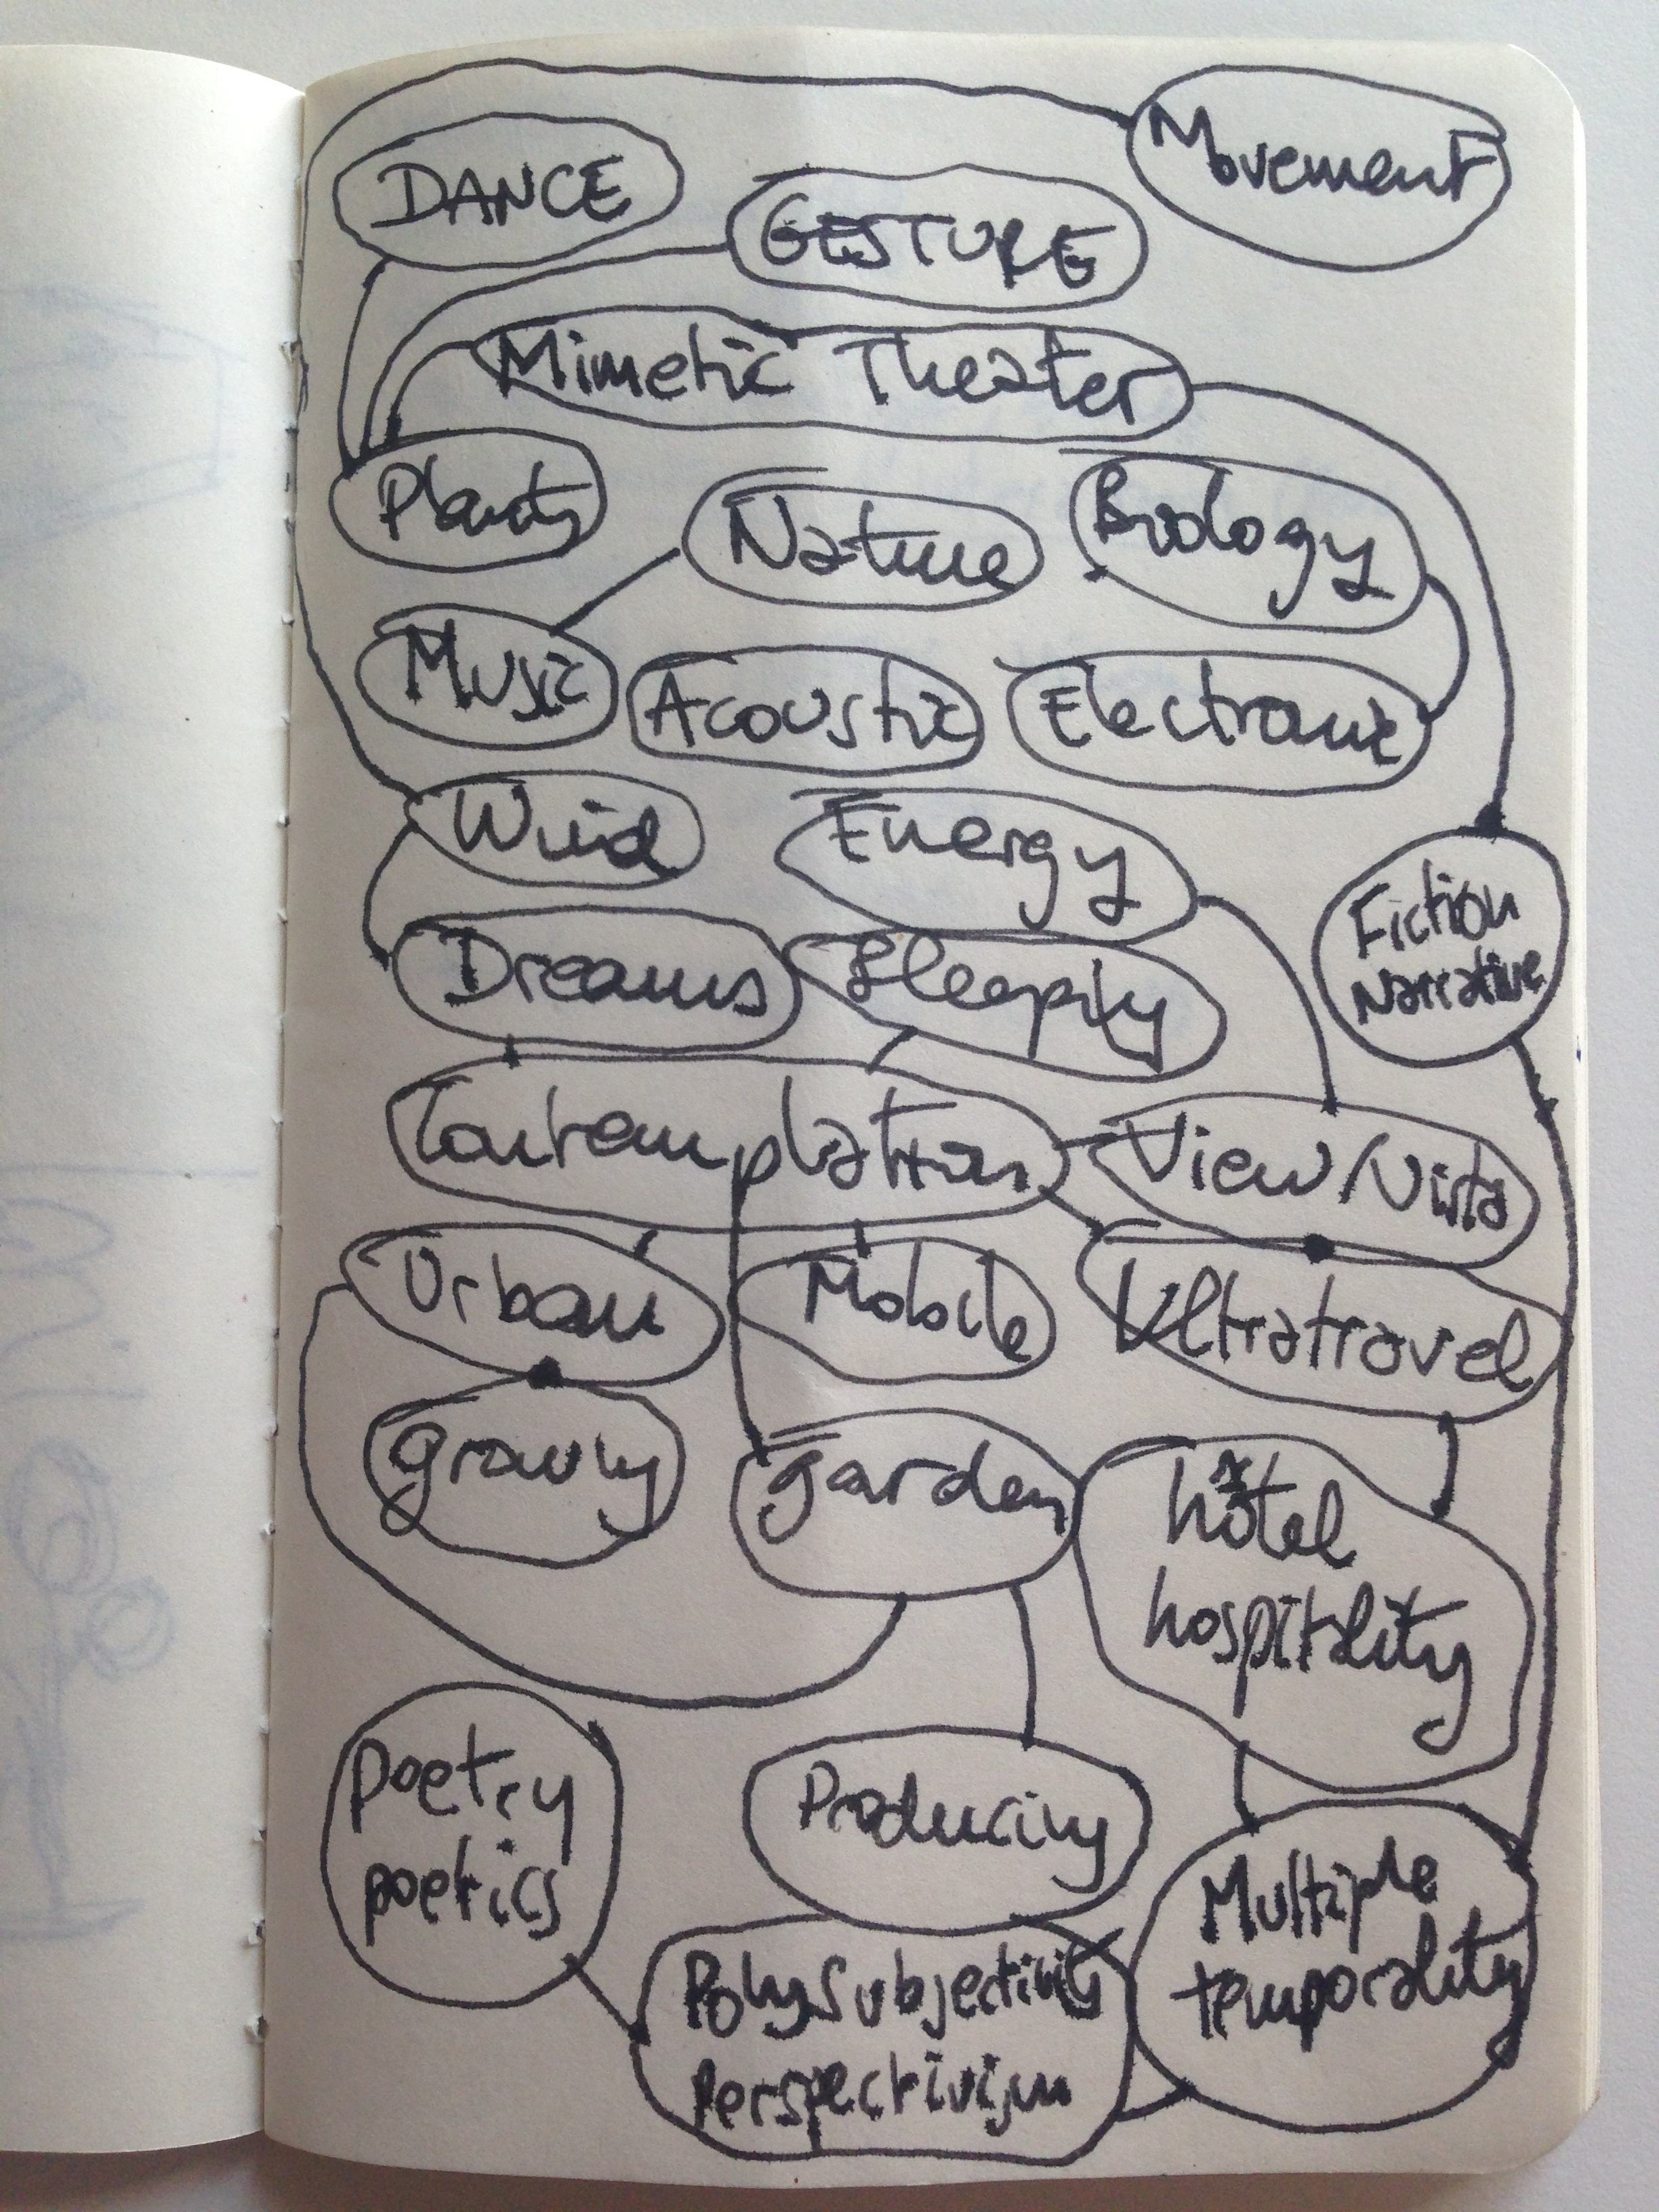 Movement
DANCE
GESTURE
Mimetic Theater
Plants
Nature
Biology
Music
Acoustic
Electronic
Wind
Energy
Fiction
Narrative
Dreams
Sleeping
Contemplation
View/Vista
Urban
Mobile
Ultratravel
growing
garden
hôtel
hospitality
poetry
poetics
Producing
Multiple
temporality
PolySubjectivity
Perspectivism